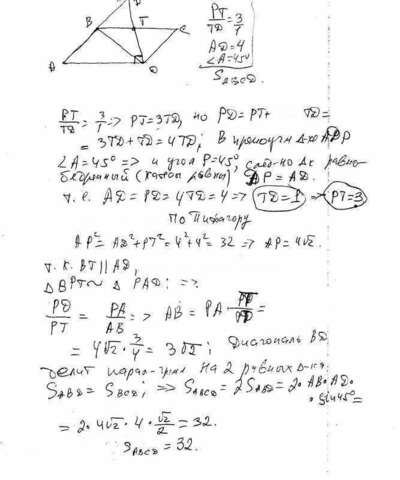 P
B T C
A D
PT/TD = 3/1
AD=4
∠A=45°
S ABCD.
PT/TD = 3/1 => PT=3TD, но PD=PT+ TD=
=3TD+TD=4TD; В прямоуг Δ-ке ADP
∠A=45° => и угол P=45°, след-но Δк равно-
бедренный (катеты равны), DP=AD.
т.е. AD=PD=4TD=4 => TD=1 => PT=3
По Пифагору
AP²=AD²+PT²=4²+4²=32 => AP=4√2.
т.к. BT||AD,
ΔBPT~ΔPAD: =>
PD/PT = PA/AB => AB=PA·PT/PD=
=4√2·3/4=3√2; Диагональ BD
делит парал-грам на 2 равных Δ-ка
S ABD=S BCD; => S ABCD=2S ABD=2·AB·AD·
·sin45°=
=2·4√2·4·√2/2=32.
S ABCD=32.